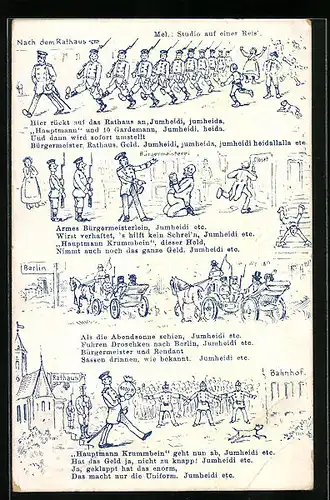 Nach dem Rathaus
Mel.: Studio auf einer Reis'.
Hier rückt auf das Rathaus an, Jumheidi, jumheida,
„Hauptmann" und 10 Gardemann, Jumheidi, heida.
Und dann wird sofort umstellt
Bürgermeister, Rathaus, Geld. Jumheidi, jumheida, jumheidi heidallalla etc
Bürgermeisterei
Closet
Armes Bürgermeisterlein, Jumheidi etc.
Wirst verhaftet, 's hilft kein Schrei'n, Jumheidi etc.
„Hauptmann Krummbein", dieser Held,
Nimmt auch noch das ganze Geld. Jumheidi etc.
Berlin
Als die Abendsonne schien, Jumheidi etc.
Fuhren Droschken nach Berlin, Jumheidi etc.
Bürgermeister und Rendant
Sassen drinnen, wie bekannt. Jumheidi etc.
Rathaus
Bahnhof.
„Hauptmann Krummbein" geht nun ab, Jumheidi etc.
Hat das Geld ja, nicht zu knapp! Jumheidi etc.
Ja, geklappt hat das enorm,
Das macht nur die Uniform. Jumheidi etc.